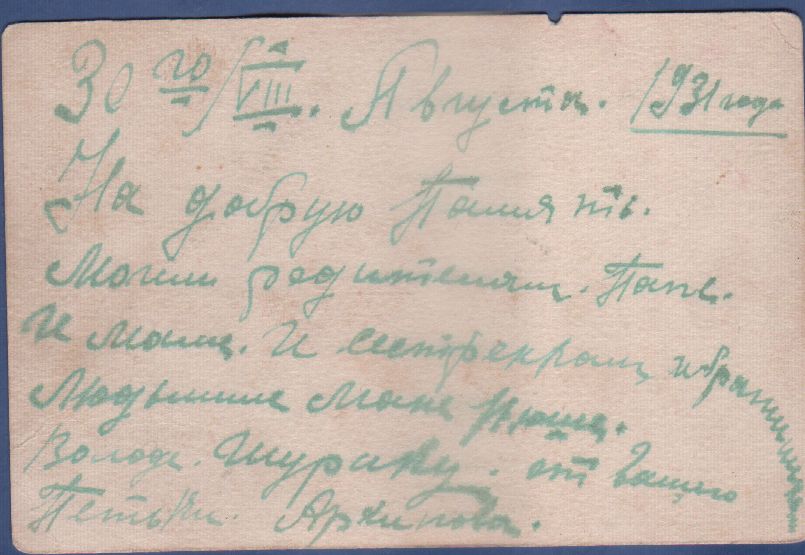 30 го/VIII. Августа. 1931 года
На добрую Память.
Моим родителям. Папе.
И Маме. И сестренкам и братишкам
Людмиле Мане
Володе. Шурику. от вашего
Петьки Архипова.